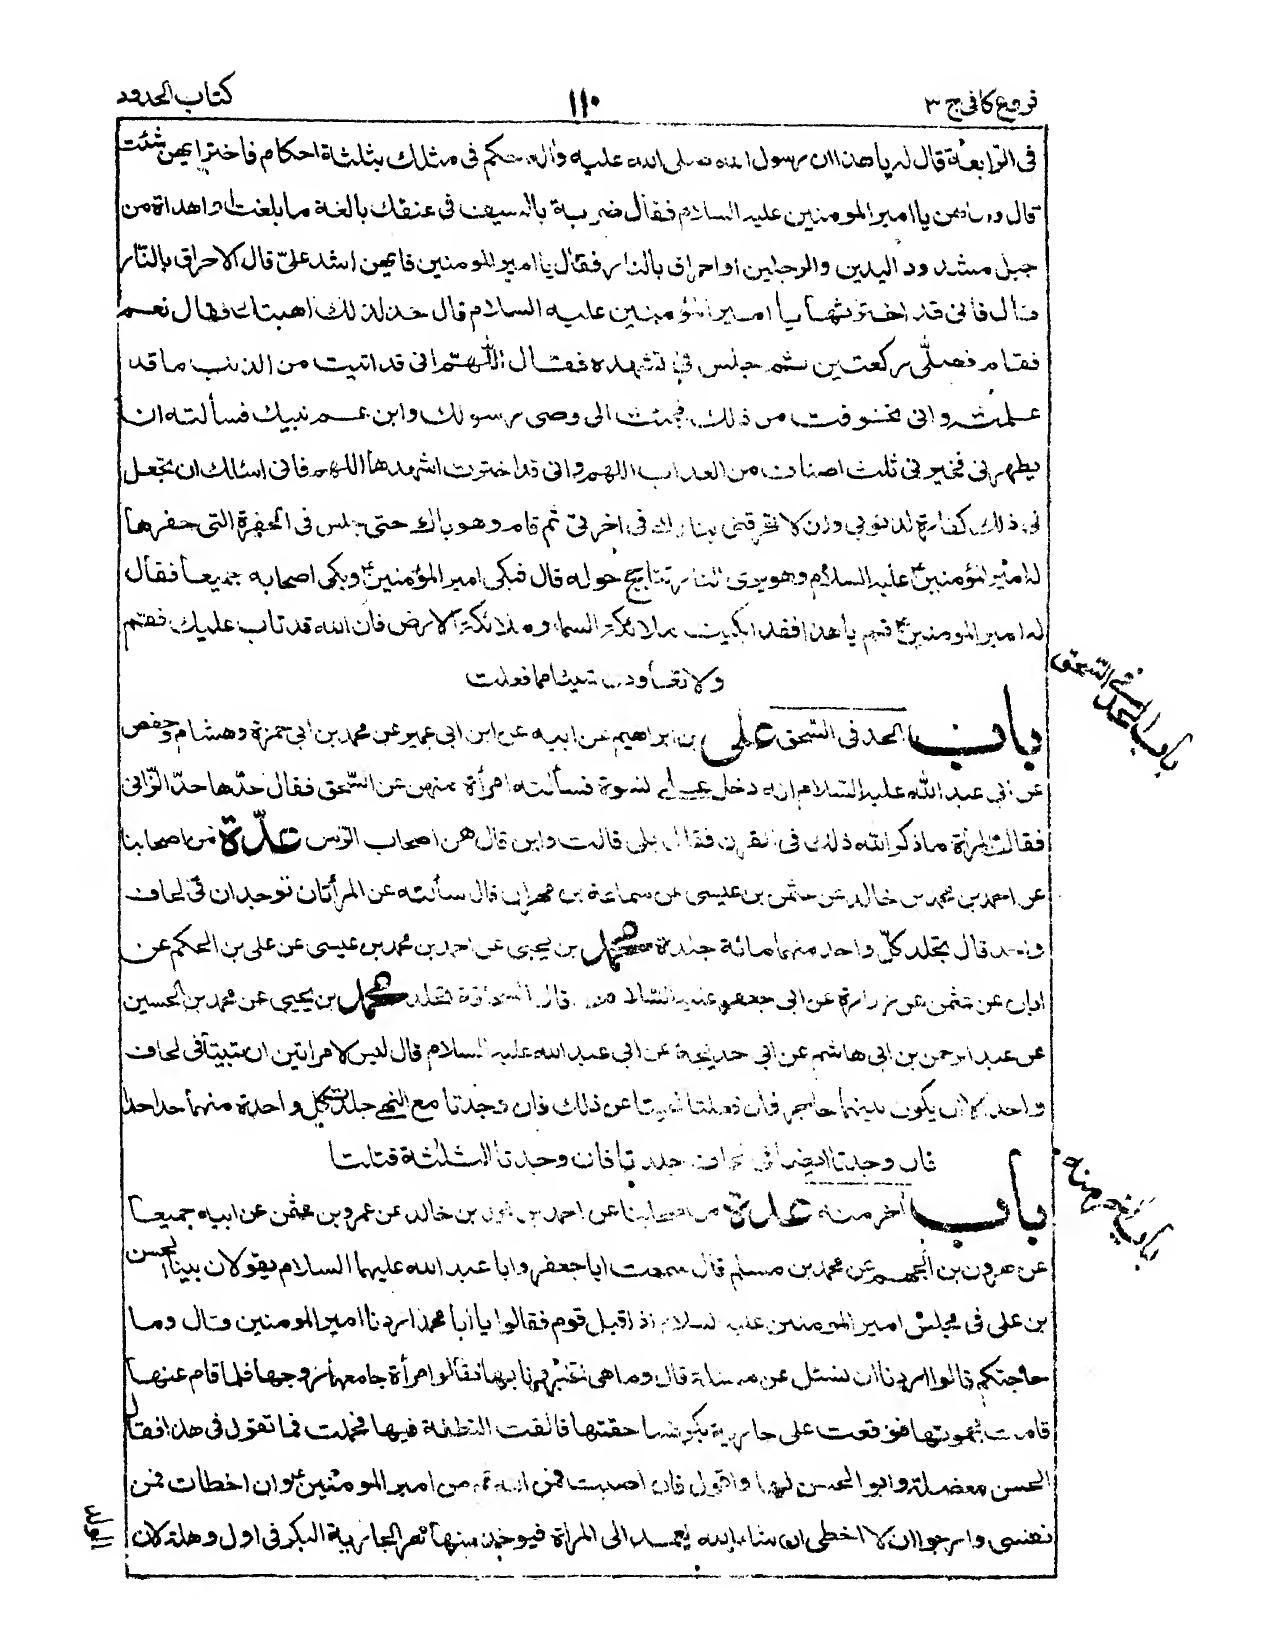 فروع کافی ج ۳
۱۱۰
کتاب الحدود
فی الرابعة قال له یا هذا ان رسول الله صلی الله علیه واله حکم فی مثلك بثلثة احکام فاختر ایهن شئت
قال وما هن یا امیر المومنین علیه السلام فقال ضربة بالسیف فی عنقك بالغة ما بلغت او اهداة من
جبل مشدود الیدین والرجلین او احراق بالنار فقال یا امیر المومنین فایهن اشد علیّ قال الاحراق بالنّار
قال فانی قد اخترتها یا امیر المؤمنین علیه السلام قال خذ لذلك اهبتك فقال نعم
فقام فصلّی رکعتین ثم جلس فی تشهده فقال اللّٰهمّ انی قد اتیت من الذنب ما قد
علمته وانی تخوفت من ذلك فجئت الی وصی رسولك وابن عم نبیك فسألته ان
یطهرنی فخیرنی ثلث اصناف من العذاب اللهم وانی قد اخترت اشدها اللهم فانی اسئلك ان تجعل
لی ذلك کفارة لذنوبی وان لا تحرقنی بنارك فی اخرتی ثم قام وهو باك حتی جلس فی الحفرة التی حفرها
له امیر المؤمنین علیه السلام وهو یری النار تتاجج حوله قال فبکی امیر المؤمنین ع وبکی اصحابه جمیعاً فقال
له امیر المومنین ع قم یا هذا فقد ابکیت ملائکة السماء وملائکة الارض فان الله قد تاب علیك فقم
ولا تعاودن شیئا مما فعلت
باب الحد فی السّحق
باب الحد فی السّحق علی بن ابراهیم عن ابیه عن ابن ابی عمیر عن محمد بن ابی حمزة وهشام وحفص
عن ابی عبد الله علیه السّلام انه دخل علیه نسوة فسألته امرأة منهن عن السّحق فقال حدّها حدّ الزّانی
فقالت المرأة ما ذکر الله ذلك فی القرن فقال بلی قالت واین قال هن اصحاب الرّس عدّة من اصحابنا
عن احمد بن محمد بن خالد عن عثمن بن عیسی عن سماعة بن مهران قال سألته عن المرأتان توجدان فی لحاف
واحد قال تجلد کلّ واحد منهما مائة جلدة محمد بن یحیی عن احمد بن محمد بن عیسی عن علی بن الحکم عن
ابان عن عثمن عن زرارة عن ابی جعفر علیه السلام قال السحاقة تجلد محمد بن یحیی عن محمد بن الحسین
عن عبد الرحمن بن ابی هاشم عن ابی خدیجة عن ابی عبد الله علیه السلام قال لیس لامراتین ان تبیتا فی لحاف
واحد الا ان یکون بینهما حاجز فان فعلتا نهیتا عن ذلك فان وجدتا مع النهی جلدت کل واحدة منهما حدا حدا
فان وجدتا ایضا فی لحاف جلدتا فان وجدتا الثلثة قتلتا
باب آخر منه
باب آخر منه عدة من اصحابنا عن احمد بن محمد بن خالد عن عمرو بن عثمن عن ابیه جمیعاً
عن هرون بن الجهم عن محمد بن مسلم قال سمعت ابا جعفر وابا عبد الله علیهما السلام یقولان بینا الحسن
بن علی فی مجلس امیر المومنین علیه السلام اذ اقبل قوم فقالوا یا ابا محمد اردنا امیر المومنین وقال وما
حاجتکم قالوا اردنا ان نسئل عن مسئلة قال وما هی تخبرونا بها فقالوا امرأة جامعها زوجها فلما قام عنها
قامت بحموتها فوقعت علی جاریة بکر فساحقتها فالقت النطفة فیها فحملت فما تقول فی هذا فقال
الحسن معضلة وابو الحسن لها واقول فان اصبت فمن الله ثم من امیر المومنین ع وان اخطات فمن
نفسی وارجو ان لا اخطی ان شاء الله یعمد الی المراة فیوخذ منها مهر الجاریة البکر فی اول وهلة لان
الولد